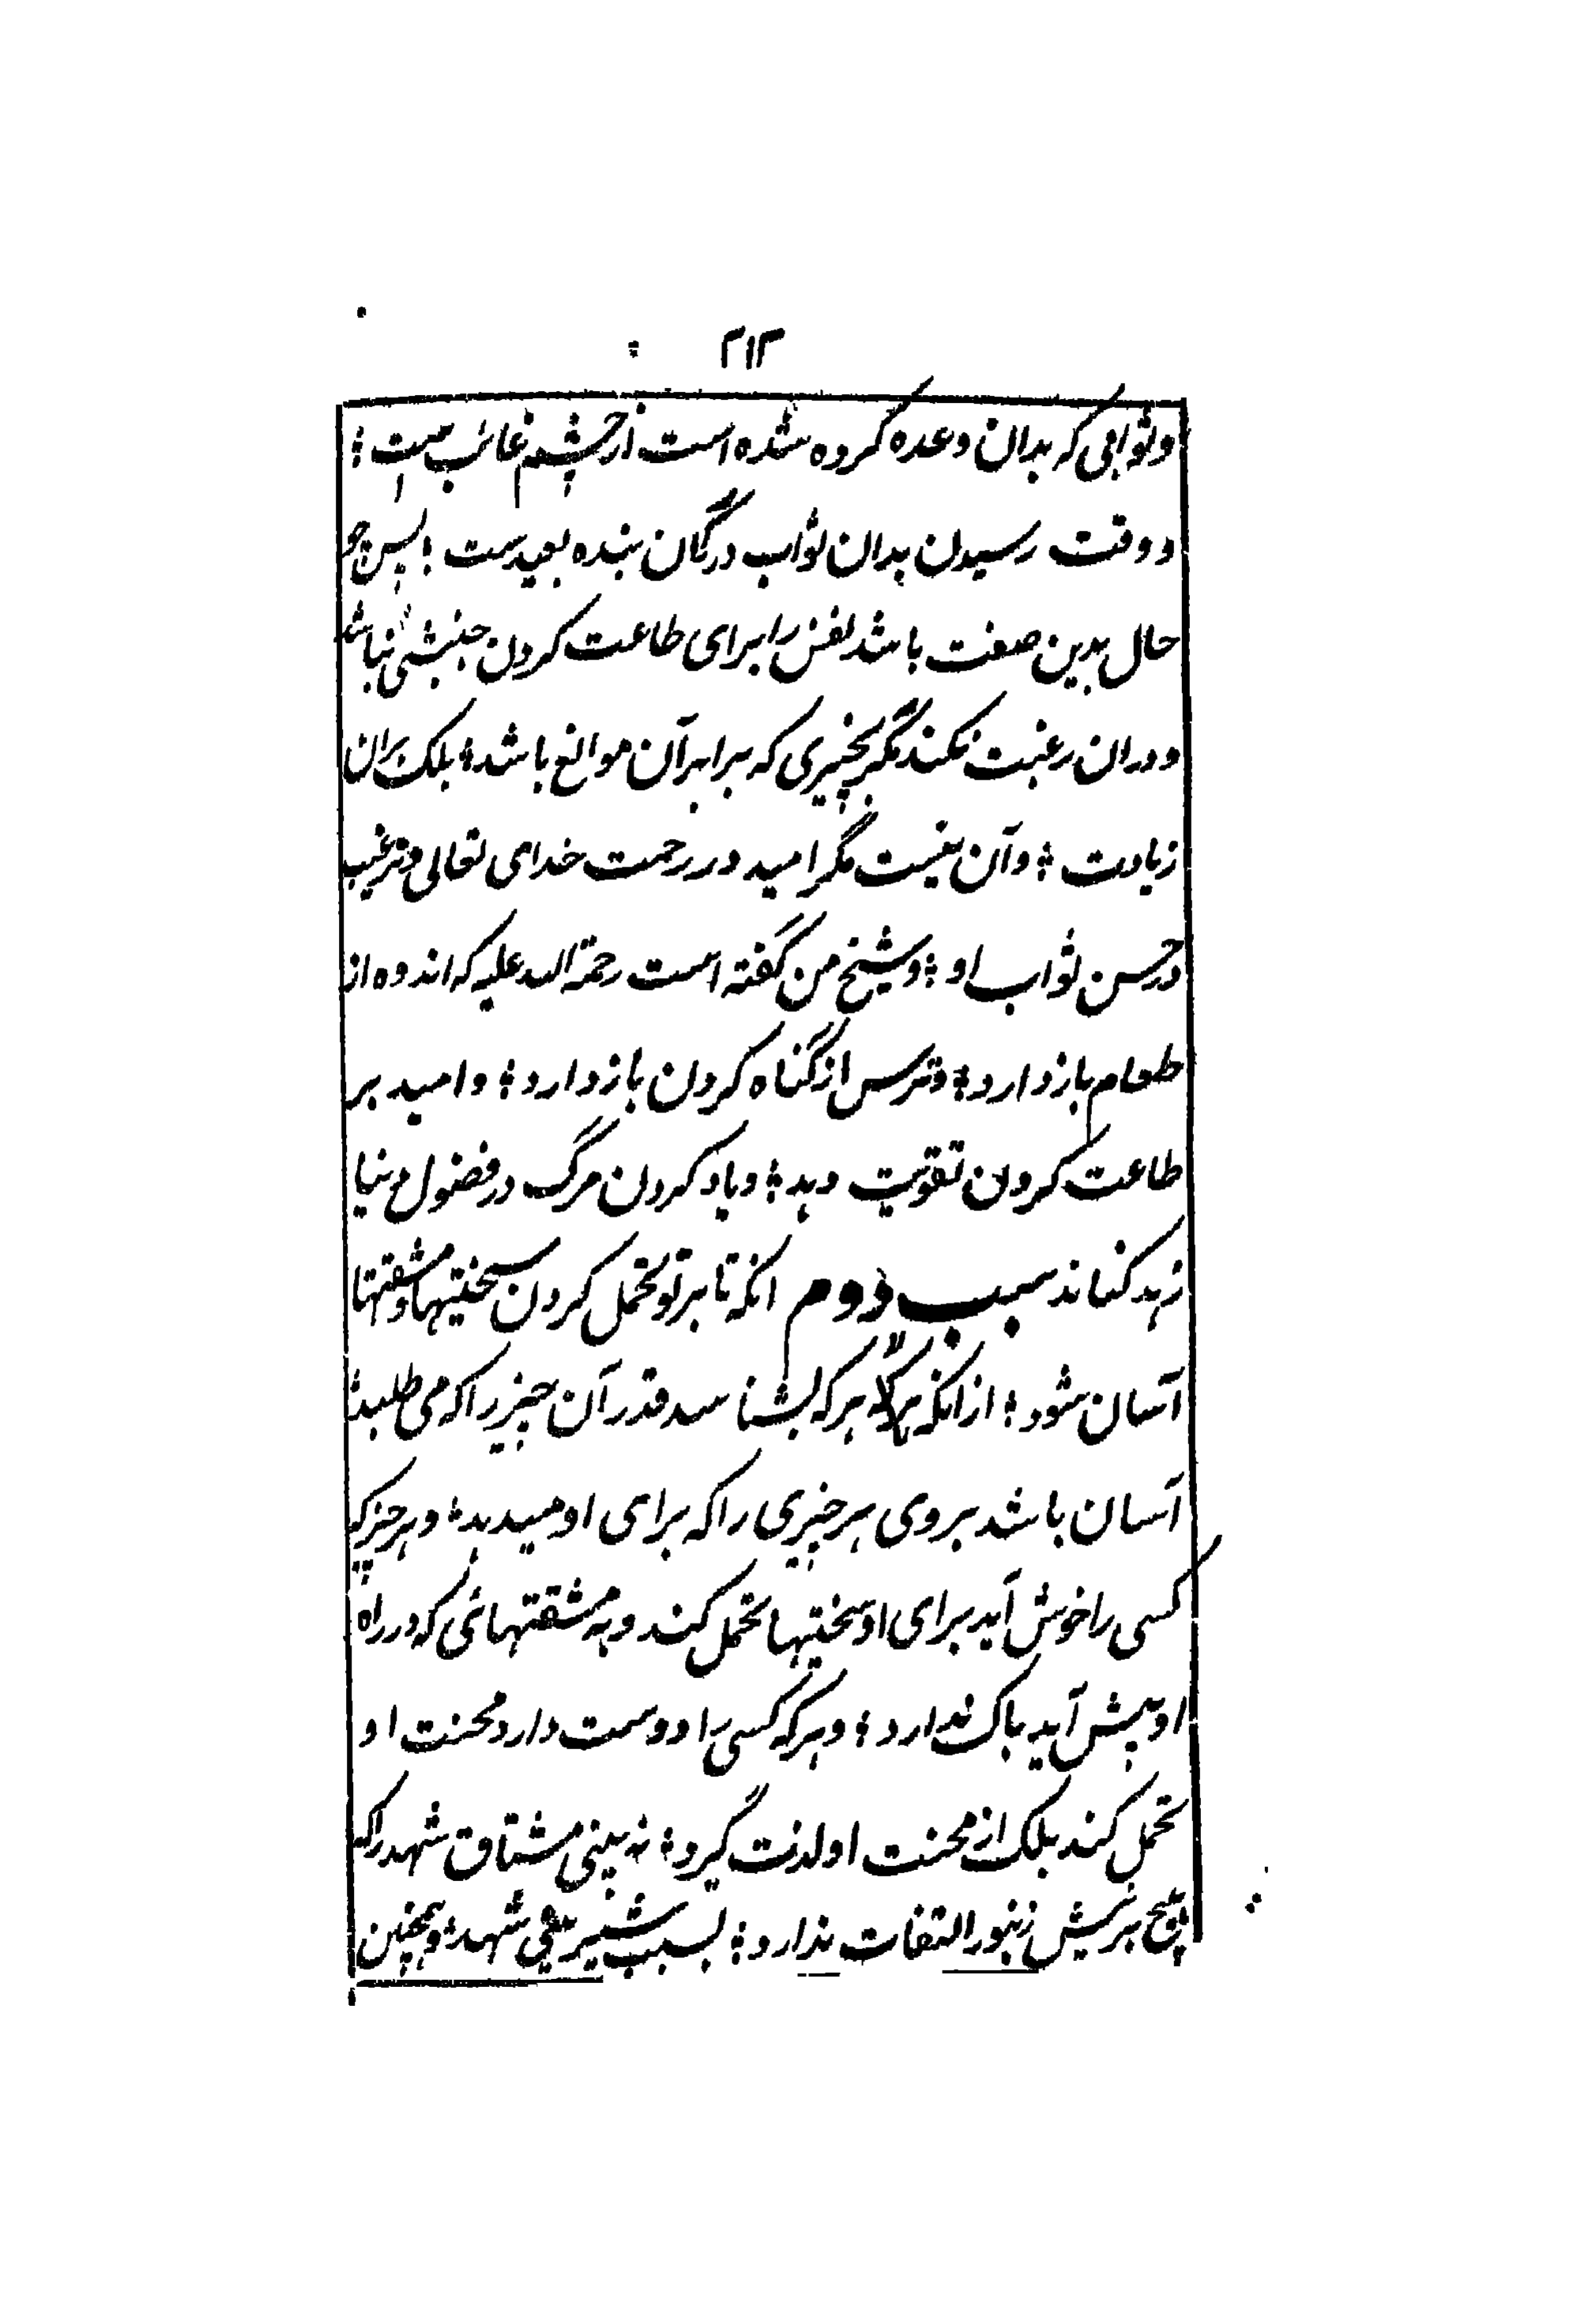 ۲۱۲
و ثوابی که بدان وعده کرده شده است از چشم غائب ست ؛
و وقت رسیدن بدان ثواب در گمان بنده بعیدست ؛ پس چو
حال بدین صفت باشد نفس را برای طاعت کردن جنبشی نباشد
و دران رغبت نکند مگر بچیزی که برابر آن موانع باشد ؛ بلکه بران
زیادت ؛ و آن نیست مگر امید در رحمت خدای تعالی و ترغیب
در حسن ثواب او ؛ و شیخ من گفته است رحمة الله علیه که اندوه از
طعام باز دارد ؛ و ترس از گناه کردن باز دارد ؛ و امید بر
طاعت کردن تقویت دهد ؛ و یاد کردن مرگ در فضول دنیا
زهد کناند سبب دوم انکه تا بر تو تحمل کردن سختیها و مشقتها
آسان شود ؛ از انکه هر که بشناسد قدر آن چیز را که می طلبد ؛
آسان باشد بروی هر چیزی را که برای او میدهد ؛ و هر چیز که
کسی را خوش آید برای او سختیها تحمل کند و به مشقتهائی که در راه
او پیش آید باک ندارد ؛ و هر که کسی را دوست دارد محنت او
تحمل کند بلکه از محنت او لذت گیرد ؛ نه بینی مشتاق شهد را که
هیچ بر نیش زنبور التفات ندارد ؛ بسبب شیرینی شهد ؛ و همچنین